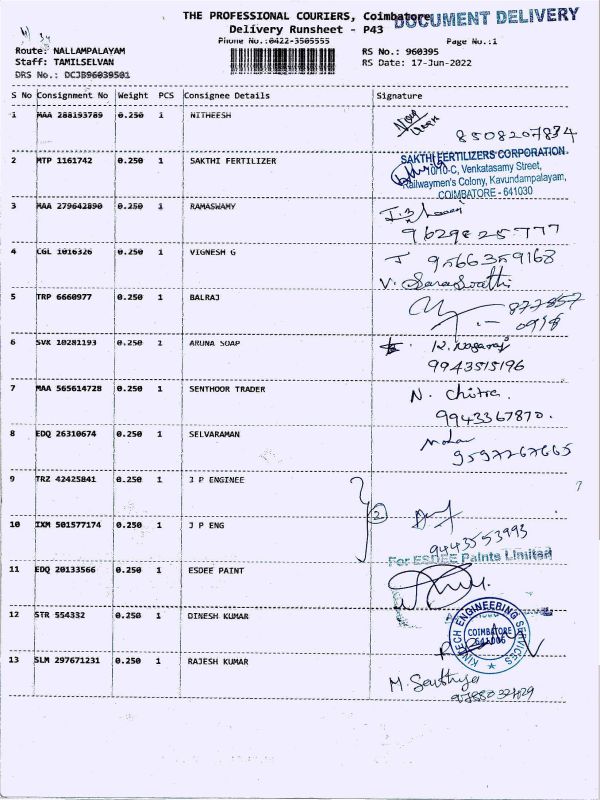 THE PROFESSIONAL COURIERS, Coimbatore
DOCUMENT DELIVERY
Delivery Runsheet - P43
Phone No.:0422-3505555
Page No.:1
Route: NALLAMPALAYAM
RS No.: 960395
Staff: TAMILSELVAN
RS Date: 17-Jun-2022
DRS No.: DCJB96039501
S No Consignment No Weight PCS Consignee Details Signature
1 MAA 288193789 0.250 1 NITHEESH
8508207834
2 MTP 1161742 0.250 1 SAKTHI FERTILIZER
SAKTHI FERTILIZERS CORPORATION.
10/10-C, Venkatasamy Street,
Railwaymen's Colony, Kavundampalayam,
COIMBATORE - 641030
3 MAA 279642890 0.250 1 RAMASWAMY
9629825777
4 CGL 1016326 0.250 1 VIGNESH G
9566359168
V. Saraswathi
5 TRP 6660977 0.250 1 BALRAJ
6 SVK 10281193 0.250 1 ARUNA SOAP
K. Nagaraj
9943515196
7 MAA 565614728 0.250 1 SENTHOOR TRADER
N. Chitra.
9943367870.
8 EDQ 26310674 0.250 1 SELVARAMAN
9597267665
9 TRZ 42425841 0.250 1 J P ENGINEE
2
10 IXM 501577174 0.250 1 J P ENG
9443553993
For ESDEE Paints Limited
11 EDQ 20133566 0.250 1 ESDEE PAINT
12 STR 554332 0.250 1 DINESH KUMAR
KINTECH ENGINEERING SERVICES
COIMBATORE
641006
13 SLM 297671231 0.250 1 RAJESH KUMAR
M. Sathya